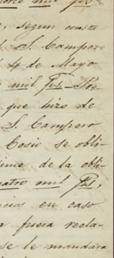 , segun consta
S. Campero
4 de Mayo
mil ps.
que hizo de
S. Campero
Cosio se obli
de la obli
uatro mil ps,
cias en caso
fuera recla
se le mandara